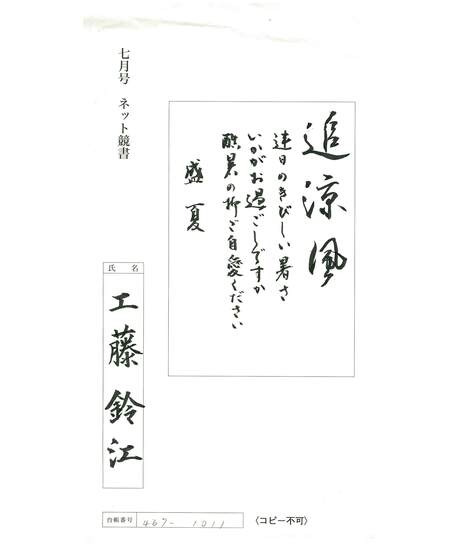 七月号 ネット競書
追涼風
連日のきびしい暑さ
いかがお過ごしですか
酷暑の折ご自愛ください
盛夏
氏名
工藤鈴江
台帳番号 467-1011
〈コピー不可〉